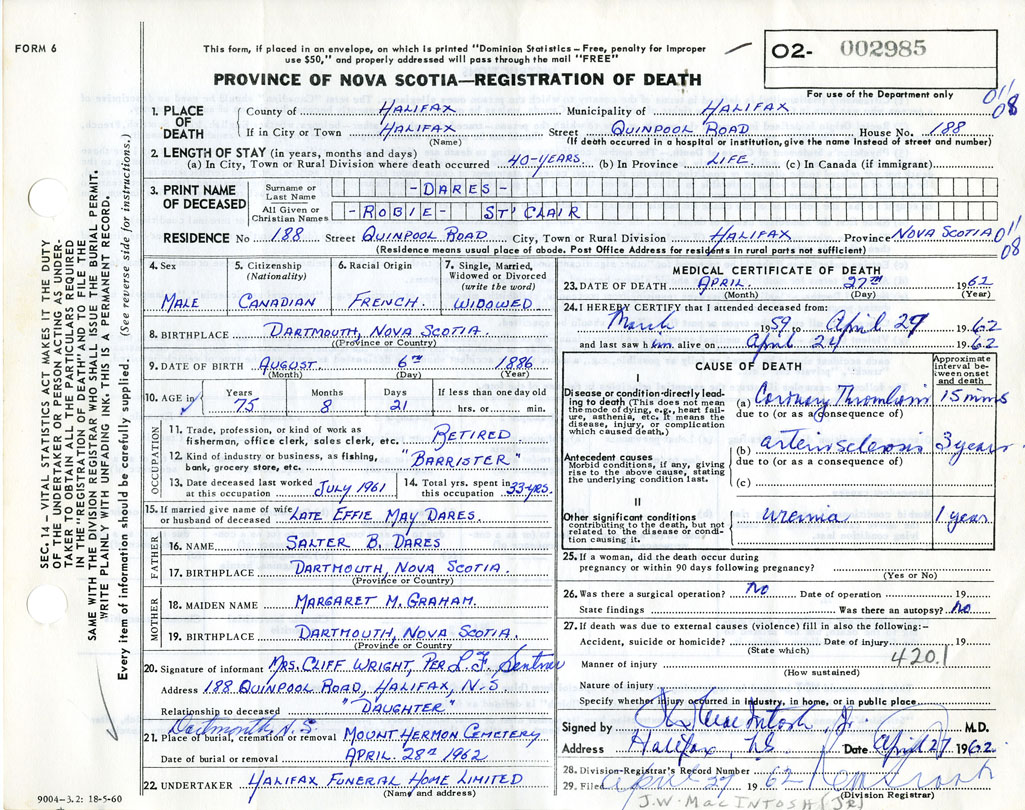 FORM 6
This form, if placed in an envelope, on which is printed "Dominion Statistics – Free, penalty for improper
use $50," and properly addressed will pass through the mail "FREE"
02- 002985
For use of the Department only
PROVINCE OF NOVA SCOTIA—REGISTRATION OF DEATH
011
08
1. PLACE OF DEATH
County of HALIFAX Municipality of HALIFAX
If in City or Town HALIFAX Street QUINPOOL ROAD House No. 188
(Name) (If death occurred in a hospital or institution, give name instead of street and number)
2. LENGTH OF STAY (in years, months and days)
(a) In City, Town or Rural Division where death occurred 40-YEARS (b) In Province LIFE (c) In Canada (if immigrant)
3. PRINT NAME OF DECEASED
Surname or Last Name -DARES-
All Given or Christian Names -ROBIE- ST'CLAIR
RESIDENCE No 188 Street QUINPOOL ROAD City, Town or Rural Division HALIFAX Province NOVA SCOTIA
011
08
(Residence means usual place of abode. Post Office Address for residents in rural parts not sufficient)
4. Sex MALE
5. Citizenship (Nationality) CANADIAN
6. Racial Origin FRENCH.
7. Single, Married, Widowed or Divorced (write the word) WIDOWED
8. BIRTHPLACE DARTMOUTH, NOVA SCOTIA.
(Province or Country)
9. DATE OF BIRTH AUGUST 6TH 1886
(Month) (Day) (Year)
10. AGE in Years 75 Months 8 Days 21 If less than one day old hrs. or min.
OCCUPATION
11. Trade, profession, or kind of work as
fisherman, office clerk, sales clerk, etc. RETIRED
12. Kind of industry or business, as fishing,
bank, grocery store, etc. "BARRISTER"
13. Date deceased last worked
at this occupation JULY 1961
14. Total yrs. spent in
this occupation 33-YRS.
15. If married give name of wife
or husband of deceased LATE EFFIE MAY DARES.
FATHER
16. NAME SALTER B. DARES
17. BIRTHPLACE DARTMOUTH, NOVA SCOTIA.
(Province or Country)
MOTHER
18. MAIDEN NAME MARGARET M. GRAHAM.
19. BIRTHPLACE DARTMOUTH, NOVA SCOTIA.
(Province or Country)
20. Signature of informant MRS. CLIFF WRIGHT, PER L.F.
Address 188 QUINPOOL ROAD, HALIFAX, N.S.
Relationship to deceased "DAUGHTER"
Dartmouth, N.S.
21. Place of burial, cremation or removal MOUNT HERMON CEMETERY
Date of burial or removal APRIL 28TH 1962
22. UNDERTAKER HALIFAX FUNERAL HOME LIMITED
(Name and address)
9004–3.2: 18-5-60
MEDICAL CERTIFICATE OF DEATH
23. DATE OF DEATH APRIL 27TH 1962
(Month) (Day) (Year)
24. I HEREBY CERTIFY that I attended deceased from:
March 1959 to April 27 1962
and last saw him alive on April 24 1962
CAUSE OF DEATH
Approximate interval between onset and death
I
Disease or condition directly leading to death (This does not mean the mode of dying, e.g., heart failure, asthenia, etc. It means the disease, injury, or complication which caused death.)
(a) Coronary Thrombosis 15 mins
due to (or as a consequence of)
Antecedent causes
Morbid conditions, if any, giving rise to the above cause, stating the underlying condition last.
(b) arteriosclerosis 3 years
due to (or as a consequence of)
(c)
II
Other significant conditions
contributing to the death, but not related to the disease or condition causing it.
uremia 1 year
25. If a woman, did the death occur during
pregnancy or within 90 days following pregnancy?
(Yes or No)
26. Was there a surgical operation? no Date of operation 19
State findings Was there an autopsy? no
27. If death was due to external causes (violence) fill in also the following:-
Accident, suicide or homicide? Date of injury 19
(State which)
420.1
Manner of injury
(How sustained)
Nature of injury
Specify whether injury occurred in industry, in home, or in public place
Signed by MacIntosh Jr M.D.
Address Halifax, NS Date April 27 1962
28. Division-Registrar's Record Number
29. Filed April 27 1962
(Division Registrar)
J.W. MACINTOSH (JR)
SEC. 14 – VITAL STATISTICS ACT MAKES IT THE DUTY
OF THE UNDERTAKER OR PERSON ACTING AS UNDERTAKER
TO OBTAIN ALL THE PARTICULARS REQUIRED
IN THE "REGISTRATION OF DEATH" AND TO FILE THE
SAME WITH THE DIVISION REGISTRAR WHO SHALL ISSUE THE BURIAL PERMIT.
WRITE PLAINLY WITH UNFADING INK. THIS IS A PERMANENT RECORD.
Every item of information should be carefully supplied. (See reverse side for instructions.)